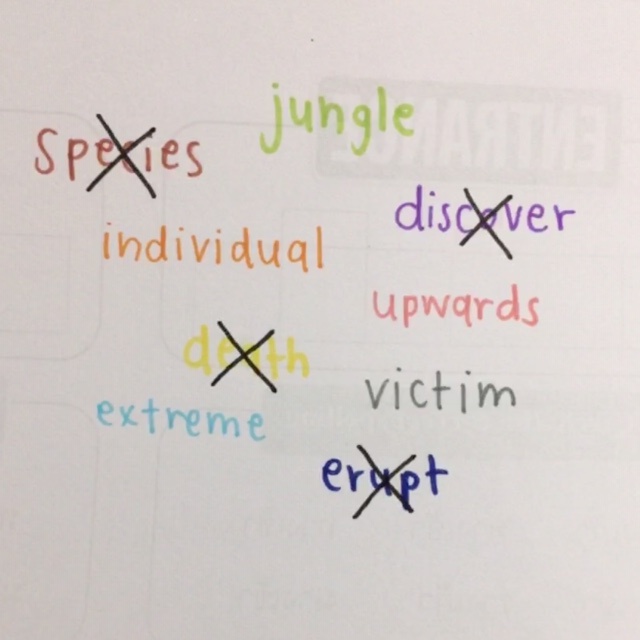 jungle
Species
discover
individual
upwards
death
victim
extreme
erupt
ENTRANCE